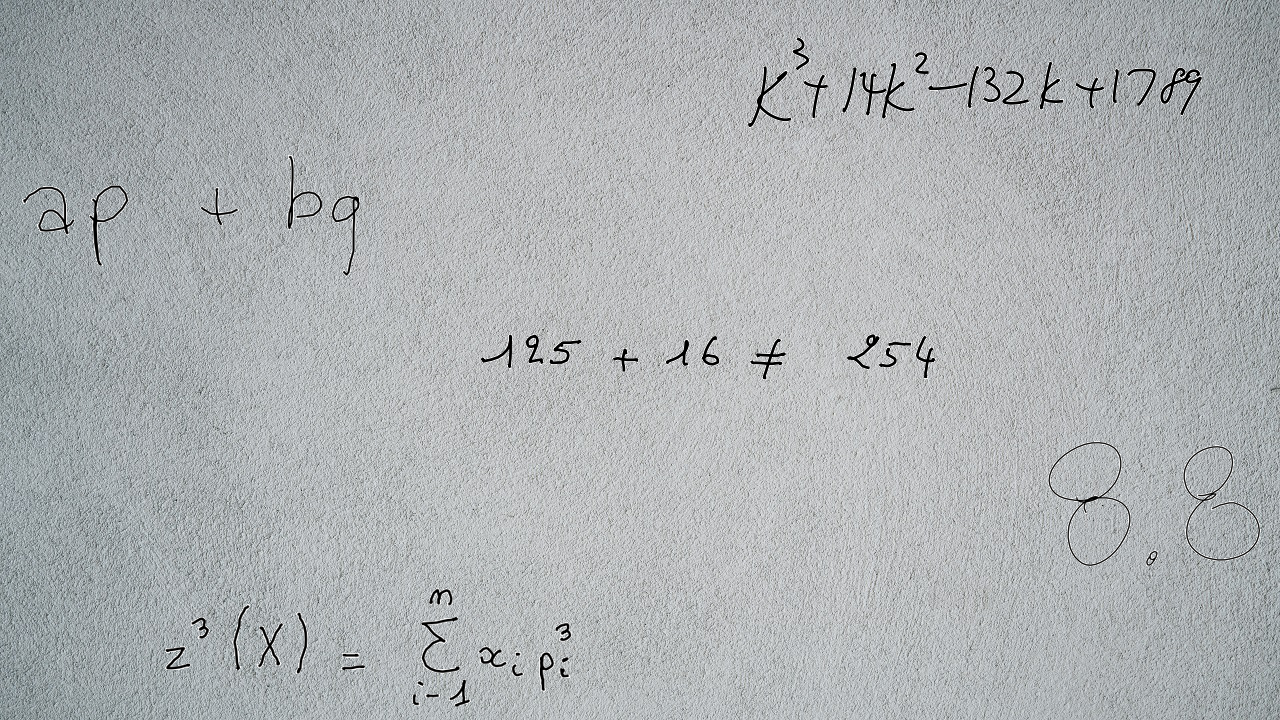 k³+14k²-132k+1789
ap + bq
125 + 16 ≠ 254
8.8
z³(X) = \sum_{i-1}^{n} x_i p_i^3